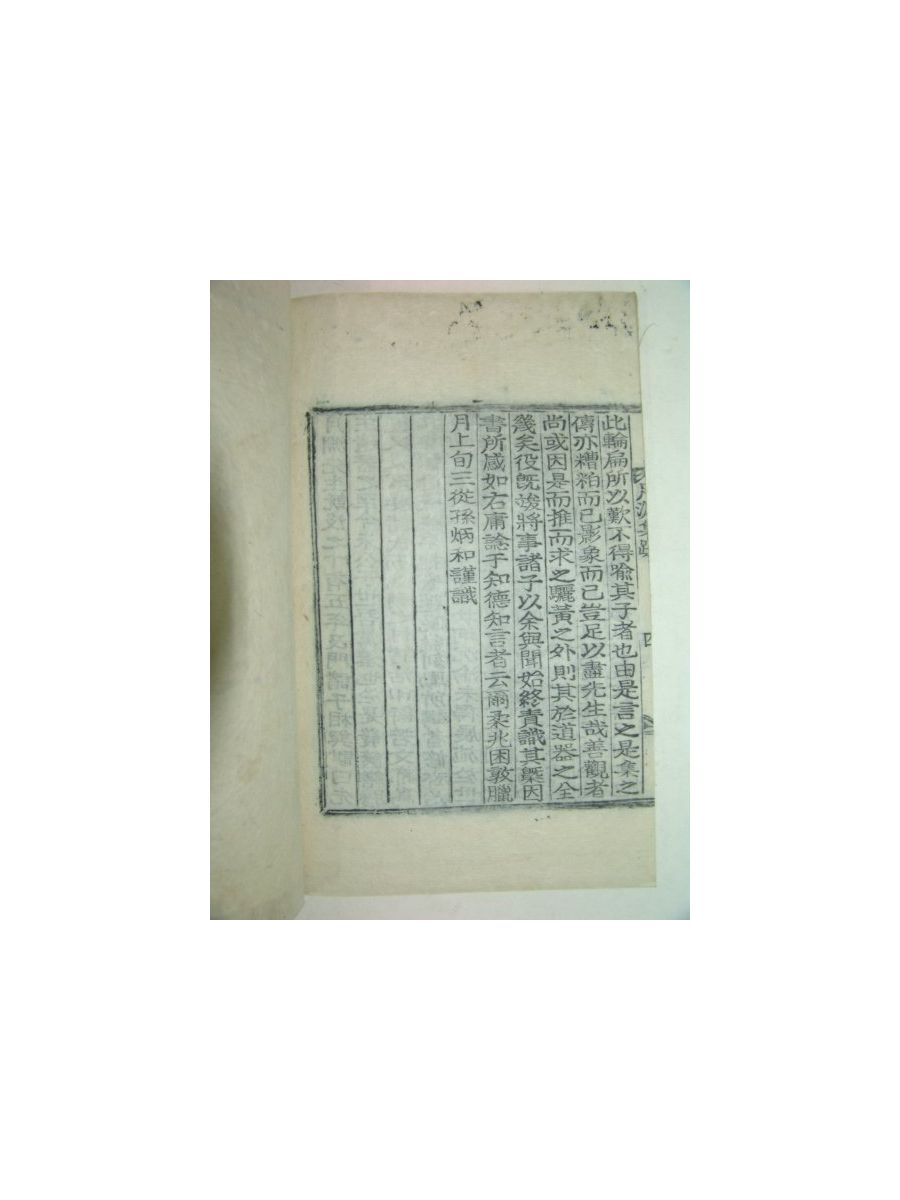 此輪扁所以歎不得喩其子者也由是言之是集之
傳亦糟粕而已影象而已豈足以盡先生哉善觀者
尚或因是而推而求之驪黃之外則其於道器之全
幾矣役旣竣將事諸子以余與聞始終責識其槩因
書所感如右庸諗于知德知言者云爾柔兆困敦臘
月上旬三從孫炳和謹識